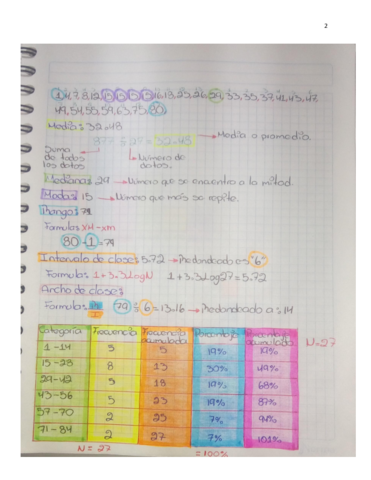 2
1,4,7,8,12,15,15,15,15,16,18,25,26,29,33,35,37,41,43,47
49,54,55,59,63,75,80
Media: 32.48
877 ÷ 27 = 32.48 → Media o promedio.
Suma de todos los datos → Número de datos.
Mediana: 29 → Número que se encuentra a la mitad.
Moda: 15 → Número que más se repite.
Rango: 79
Formula: XM - xm
80 - 1 = 79
Intervalo de clase: 5.72 → Redondeado es "6"
Formula: 1+3.3LogN 1+3.3Log27 = 5.72
Ancho de clase:
Formula: 79 ÷ 6 = 13.16 → Redondeado a: 14
Categoria Frecuencia Frecuencia acumulada Porcentaje Porcentaje acumulado N=27
1-14 5 5 19% 19%
15-28 8 13 30% 49%
29-42 5 18 19% 68%
43-56 5 23 19% 87%
57-70 2 25 7% 94%
71-84 2 27 7% 101%
N = 27 =100%